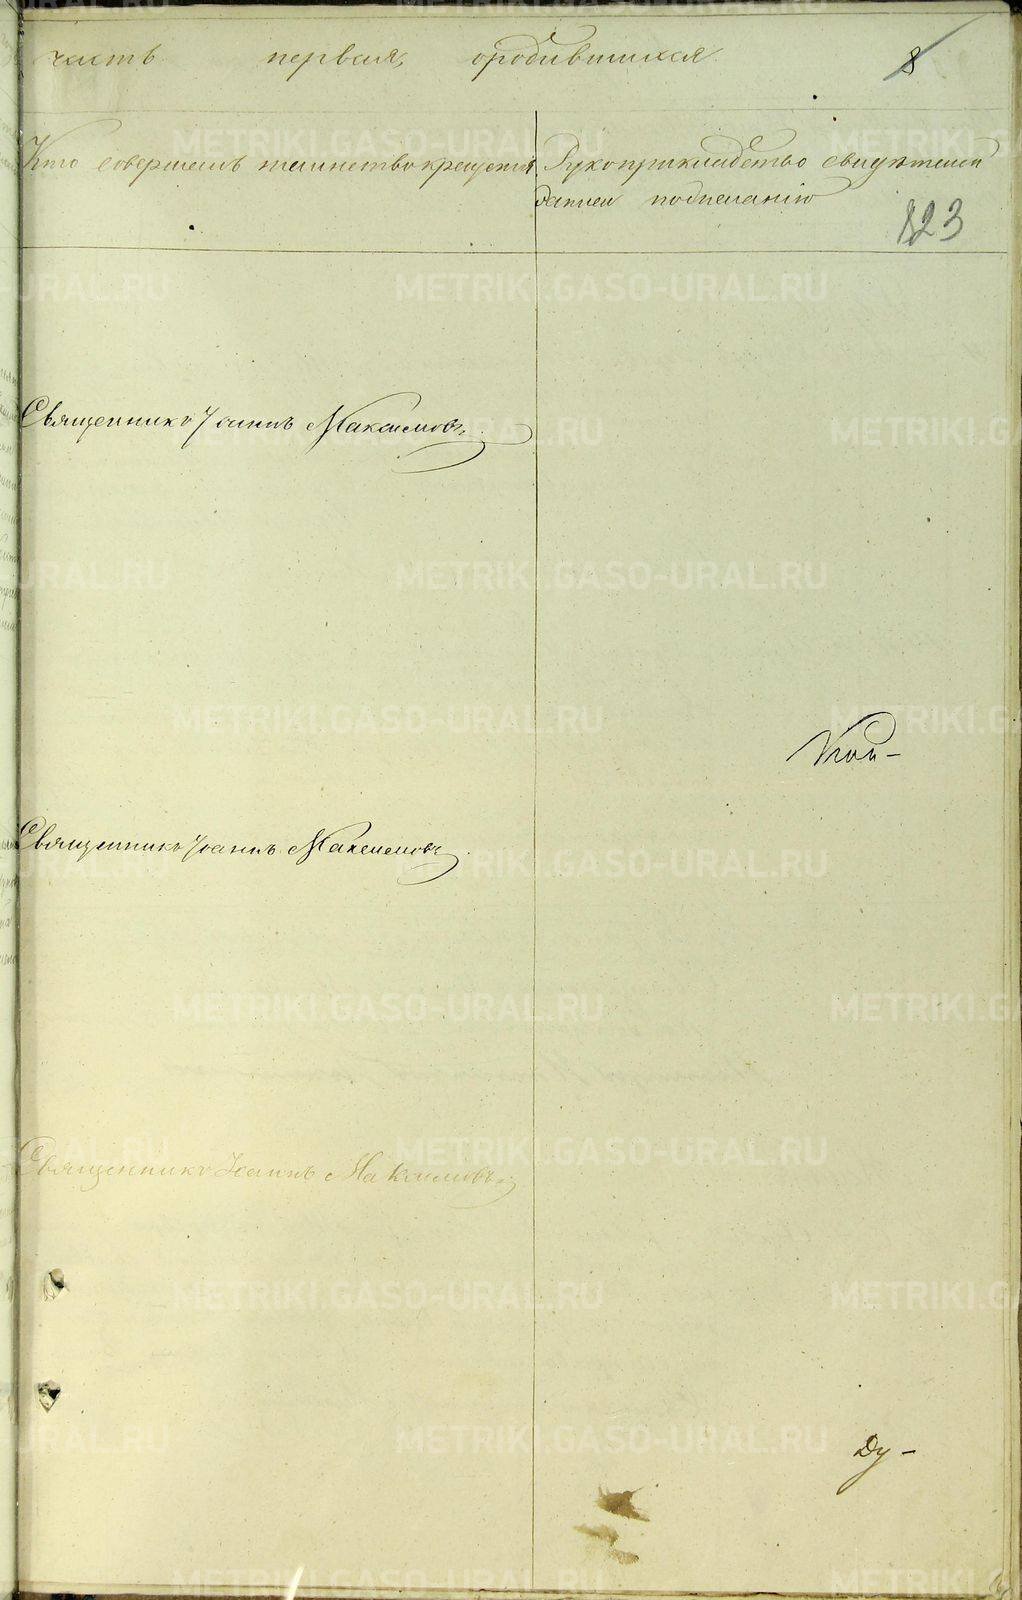 часть первая, ородившихся.
8
Кто совершалъ таинство крещенія
Рукоприкладство свидѣтелей
записи по желанію
823
Священникъ Іоаннъ Максимовъ
Священникъ Іоаннъ Максимовъ
Священникъ Іоаннъ Максимовъ
Ду-
METRIKI.GASO-URAL.RU